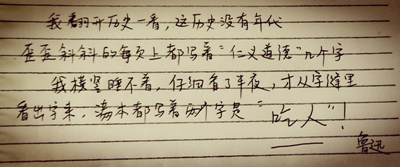 我翻开历史一看，这历史没有年代
歪歪斜斜的每页上都写着“仁义道德”几个字
我横竖睡不着，仔细看了半夜，才从字缝里
看出字来，满本都写着两个字是“吃人”！
鲁迅